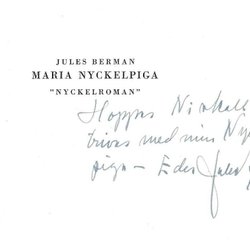 JULES BERMAN
MARIA NYCKELPIGA
"NYCKELROMAN"
Hoppas Ni skall
trivas med min Ny
piga - Eder Jules